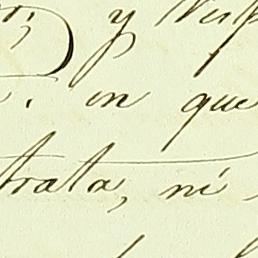 y Vesp
en que
trata, ni